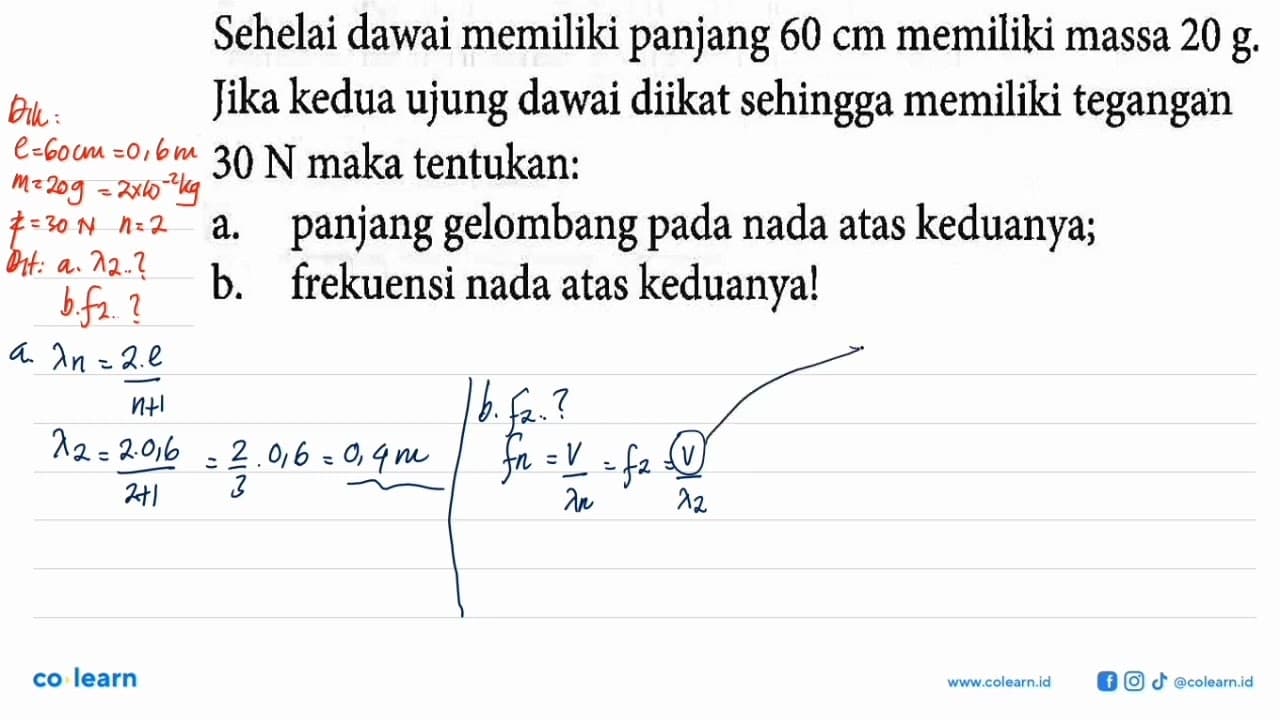 Sehelai dawai memiliki panjang 60 cm memiliki massa 20 g.
Jika kedua ujung dawai diikat sehingga memiliki tegangan
30 N maka tentukan:
a. panjang gelombang pada nada atas keduanya;
b. frekuensi nada atas keduanya!
Dik:
l=60cm=0,6m
m=20g = 2x10⁻²kg
F=30 N n=2
Dit: a. λ2..?
b. f2..?
a. λn = 2.l/n+1
λ2 = 2.0,6/2+1 = 2/3 . 0,6 = 0,4 m
b. f2..?
fn = V/λn = f2 = V/λ2
co learn
www.colearn.id @colearn.id